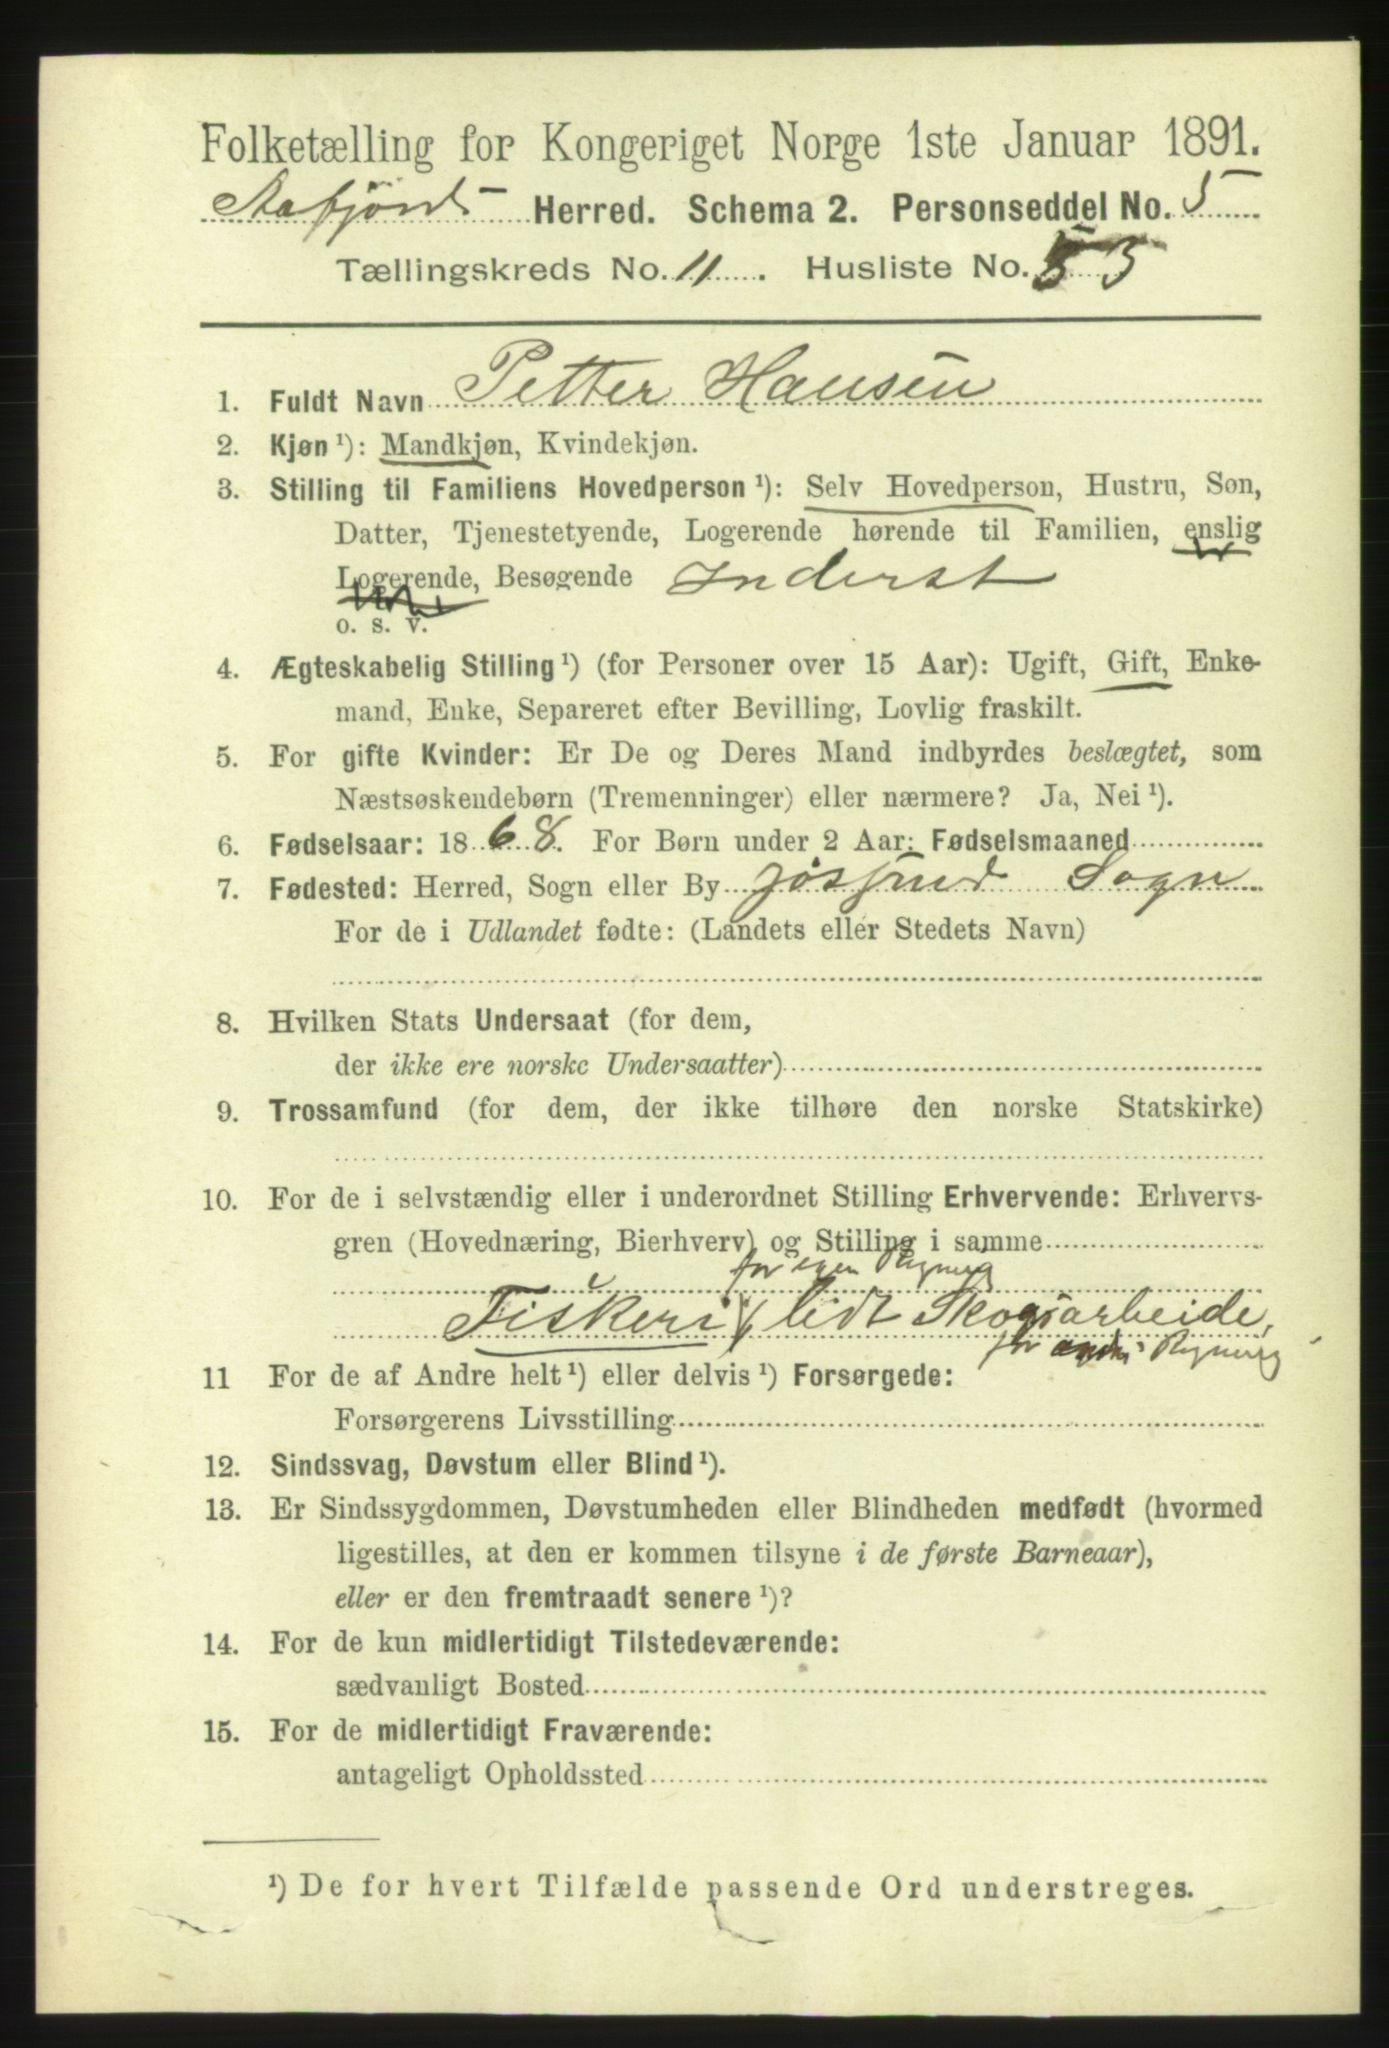 Folketælling for Kongeriget Norge 1ste Januar 1891.
Aafjord Herred. Schema 2. Personseddel No. 5
Tællingskreds No. 11. Husliste No. 55
1. Fuldt Navn Petter Hansen
2. Kjøn ¹): Mandkjøn, Kvindekjøn.
3. Stilling til Familiens Hovedperson ¹): Selv Hovedperson, Hustru, Søn,
Datter, Tjenestetyende, Logerende hørende til Familien, enslig
Logerende, Besøgende Inderst
o. s. v.
4. Ægteskabelig Stilling ¹) (for Personer over 15 Aar): Ugift, Gift, Enke-
mand, Enke, Separeret efter Bevilling, Lovlig fraskilt.
5. For gifte Kvinder: Er De og Deres Mand indbyrdes beslægtet, som
Næstsøskendebørn (Tremenninger) eller nærmere? Ja, Nei ¹).
6. Fødselsaar: 1868. For Børn under 2 Aar: Fødselsmaaned
7. Fødested: Herred, Sogn eller By Jøssund Sogn
For de i Udlandet fødte: (Landets eller Stedets Navn)
8. Hvilken Stats Undersaat (for dem,
der ikke ere norske Undersaatter)
9. Trossamfund (for dem, der ikke tilhøre den norske Statskirke)
10. For de i selvstændig eller i underordnet Stilling Erhvervende: Erhvervs-
gren (Hovednæring, Bierhverv) og Stilling i samme
for egen Regning
Fiskeri, lidt Skogsarbeide,
for andres Regning
11 For de af Andre helt ¹) eller delvis ¹) Forsørgede:
Forsørgerens Livsstilling
12. Sindssvag, Døvstum eller Blind ¹).
13. Er Sindssygdommen, Døvstumheden eller Blindheden medfødt (hvormed
ligestilles, at den er kommen tilsyne i de første Barneaar),
eller er den fremtraadt senere ¹)?
14. For de kun midlertidigt Tilstedeværende:
sædvanligt Bosted
15. For de midlertidigt Fraværende:
antageligt Opholdssted
¹) De for hvert Tilfælde passende Ord understreges.